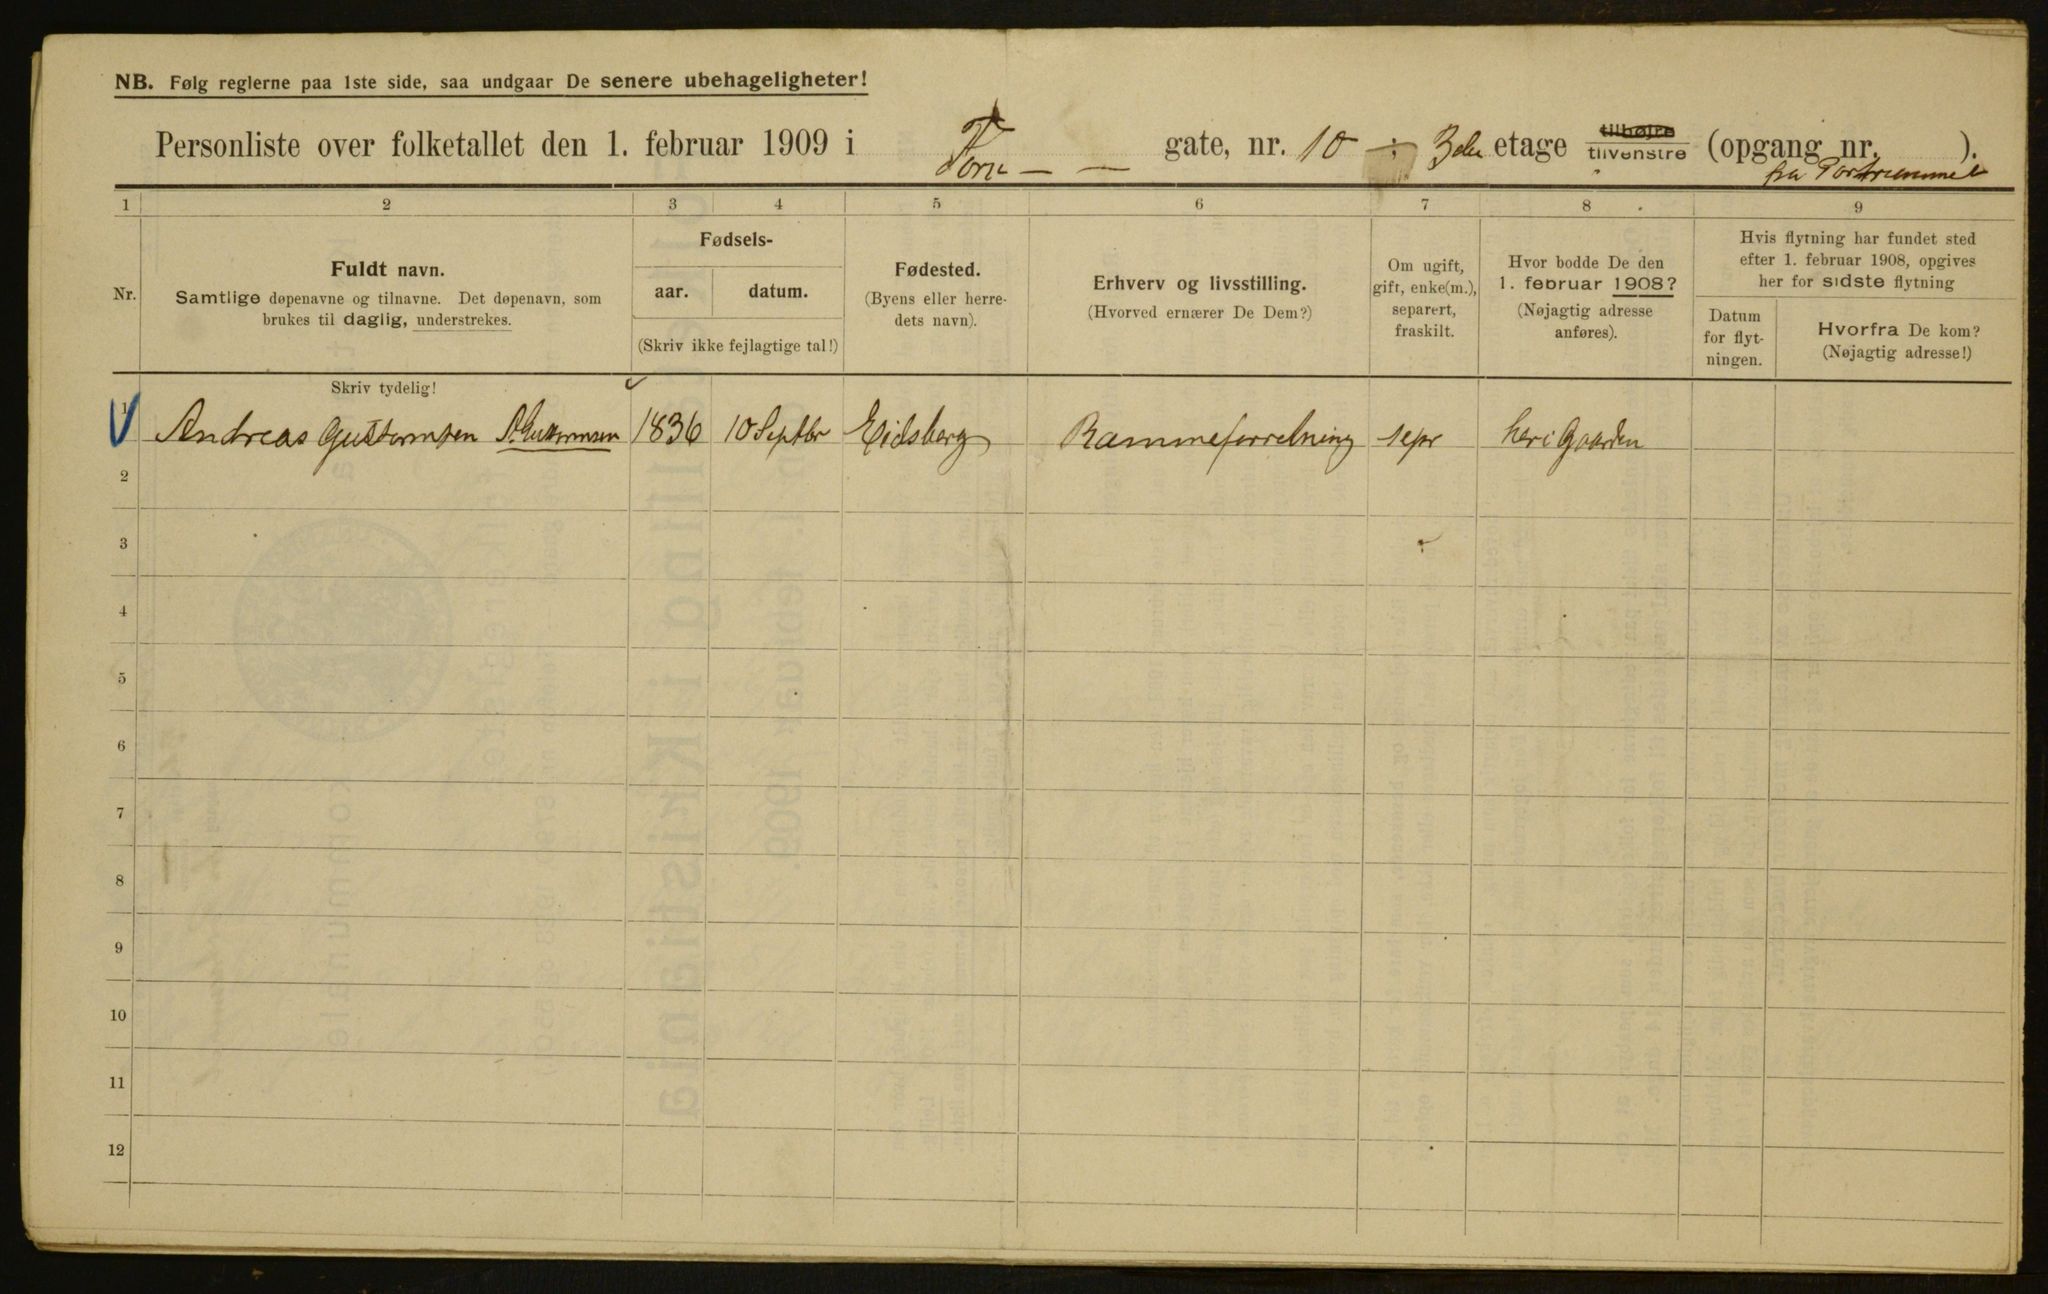 NB. Følg reglerne paa 1ste side, saa undgaar De senere ubehageligheter!
Personliste over folketallet den 1. februar 1909 i Torv — — gate, nr. 10 — ; 3die etage tilhøjre tilvenstre (opgang nr. ).
fra Portrummet
1 2 3 4 5 6 7 8 9
Nr.
Fuldt navn.
Samtlige døpenavne og tilnavne. Det døpenavn, som
brukes til daglig, understrekes.
Fødsels-
aar. datum.
(Skriv ikke fejlagtige tal!)
Fødested.
(Byens eller herre-
dets navn).
Erhverv og livsstilling.
(Hvorved ernærer De Dem?)
Om ugift,
gift, enke(m.),
separert,
fraskilt.
Hvor bodde De den
1. februar 1908?
(Nøjagtig adresse
anføres).
Hvis flytning har fundet sted
efter 1. februar 1908, opgives
her for sidste flytning
Datum
for flyt-
ningen.
Hvorfra De kom?
(Nøjagtig adresse!)
Skriv tydelig!
1 Andreas Guttormsen A. Guttormsen 1836 10 Septbr Eidsberg Rammeforretning sepr her i Gaarden
2
3
4
5
6
7
8
9
10
11
12